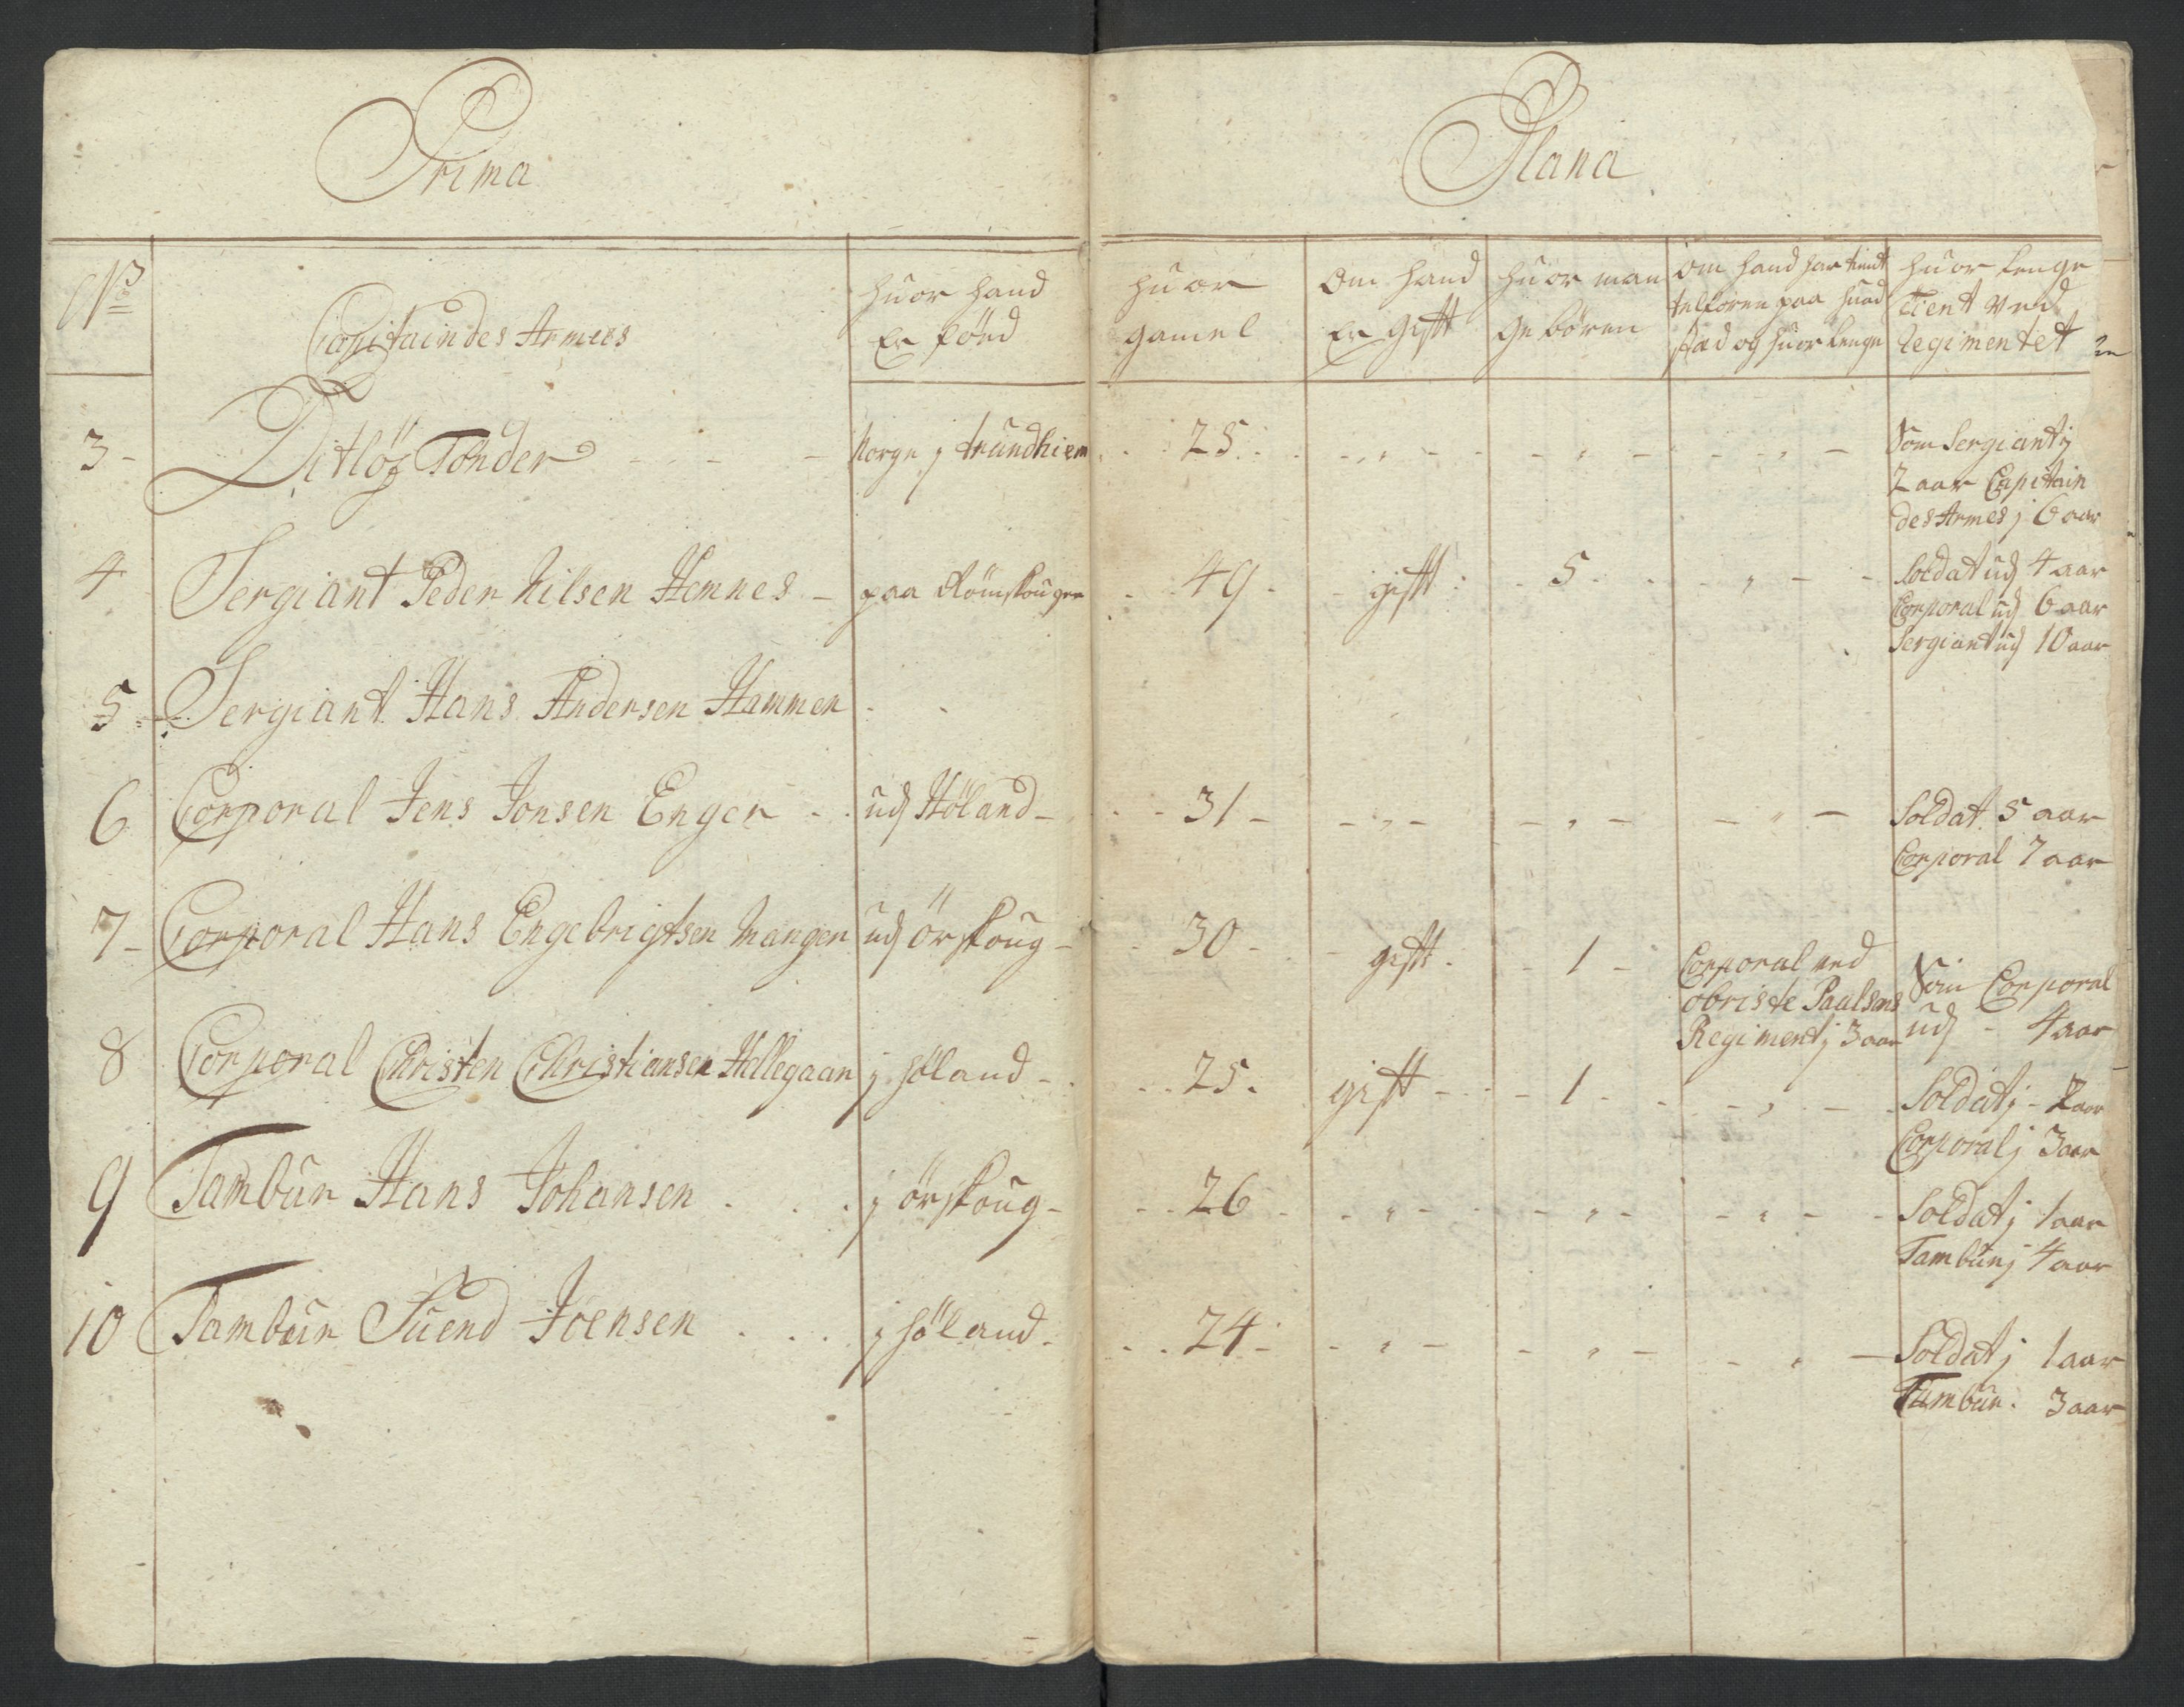 Prima Plana
No
Capitain des Armees
huor hand
Er föed
huor
gamel
Om hand
Er gift
huor man
ge bören
Om hand har tient
tilforen paa huad
stæd og huor lenge
huor lenge
tient ved
Regimentet
3 - Ditlöf Tönder - - - - Norge j trundhiem - 25 - - „ - - „ - - „ -
Som Sergiant j
2 aar Capitain
des Armes j 6 aar
4 Sergiant Peder Nilsen Hemnes - paa Römskougen - 49 - gift - 5 - - „ -
Soldat udj 4 aar
Corporal udj 6 aar
Sergiant udj 10 aar
5 - Sergiant Hans Andersen Hammen
6 Corporal Jens Jonsen Enger - udj Höland - - 31 - - „ - - „ - - „ -
Soldat 5 aar
Corporal 7 aar
7 - Corporal Hans Engebrigtsen Mangen udj örskoug - 30 - gift - 1 -
Corporal ved
obriste Paulsens
Regiment j 3 aar
Som Corporal
udj - 4 aar
8 Corporal Christen Christiansen Hellegaar j höland - 25 - gift - - 1 - - „ -
Soldat j - 2 aar
Corporal j 3 aar
9 Tambur Hans Johansen . . . j örskoug - - 26 - - „ - - „ - - „ -
Soldat j 1 aar
Tambur j 4 aar
10 Tambur Suend Joensen . . . j höland - - 24 - - „ - - „ - - „ -
Soldat j 1 aar
Tambur . 3 aar